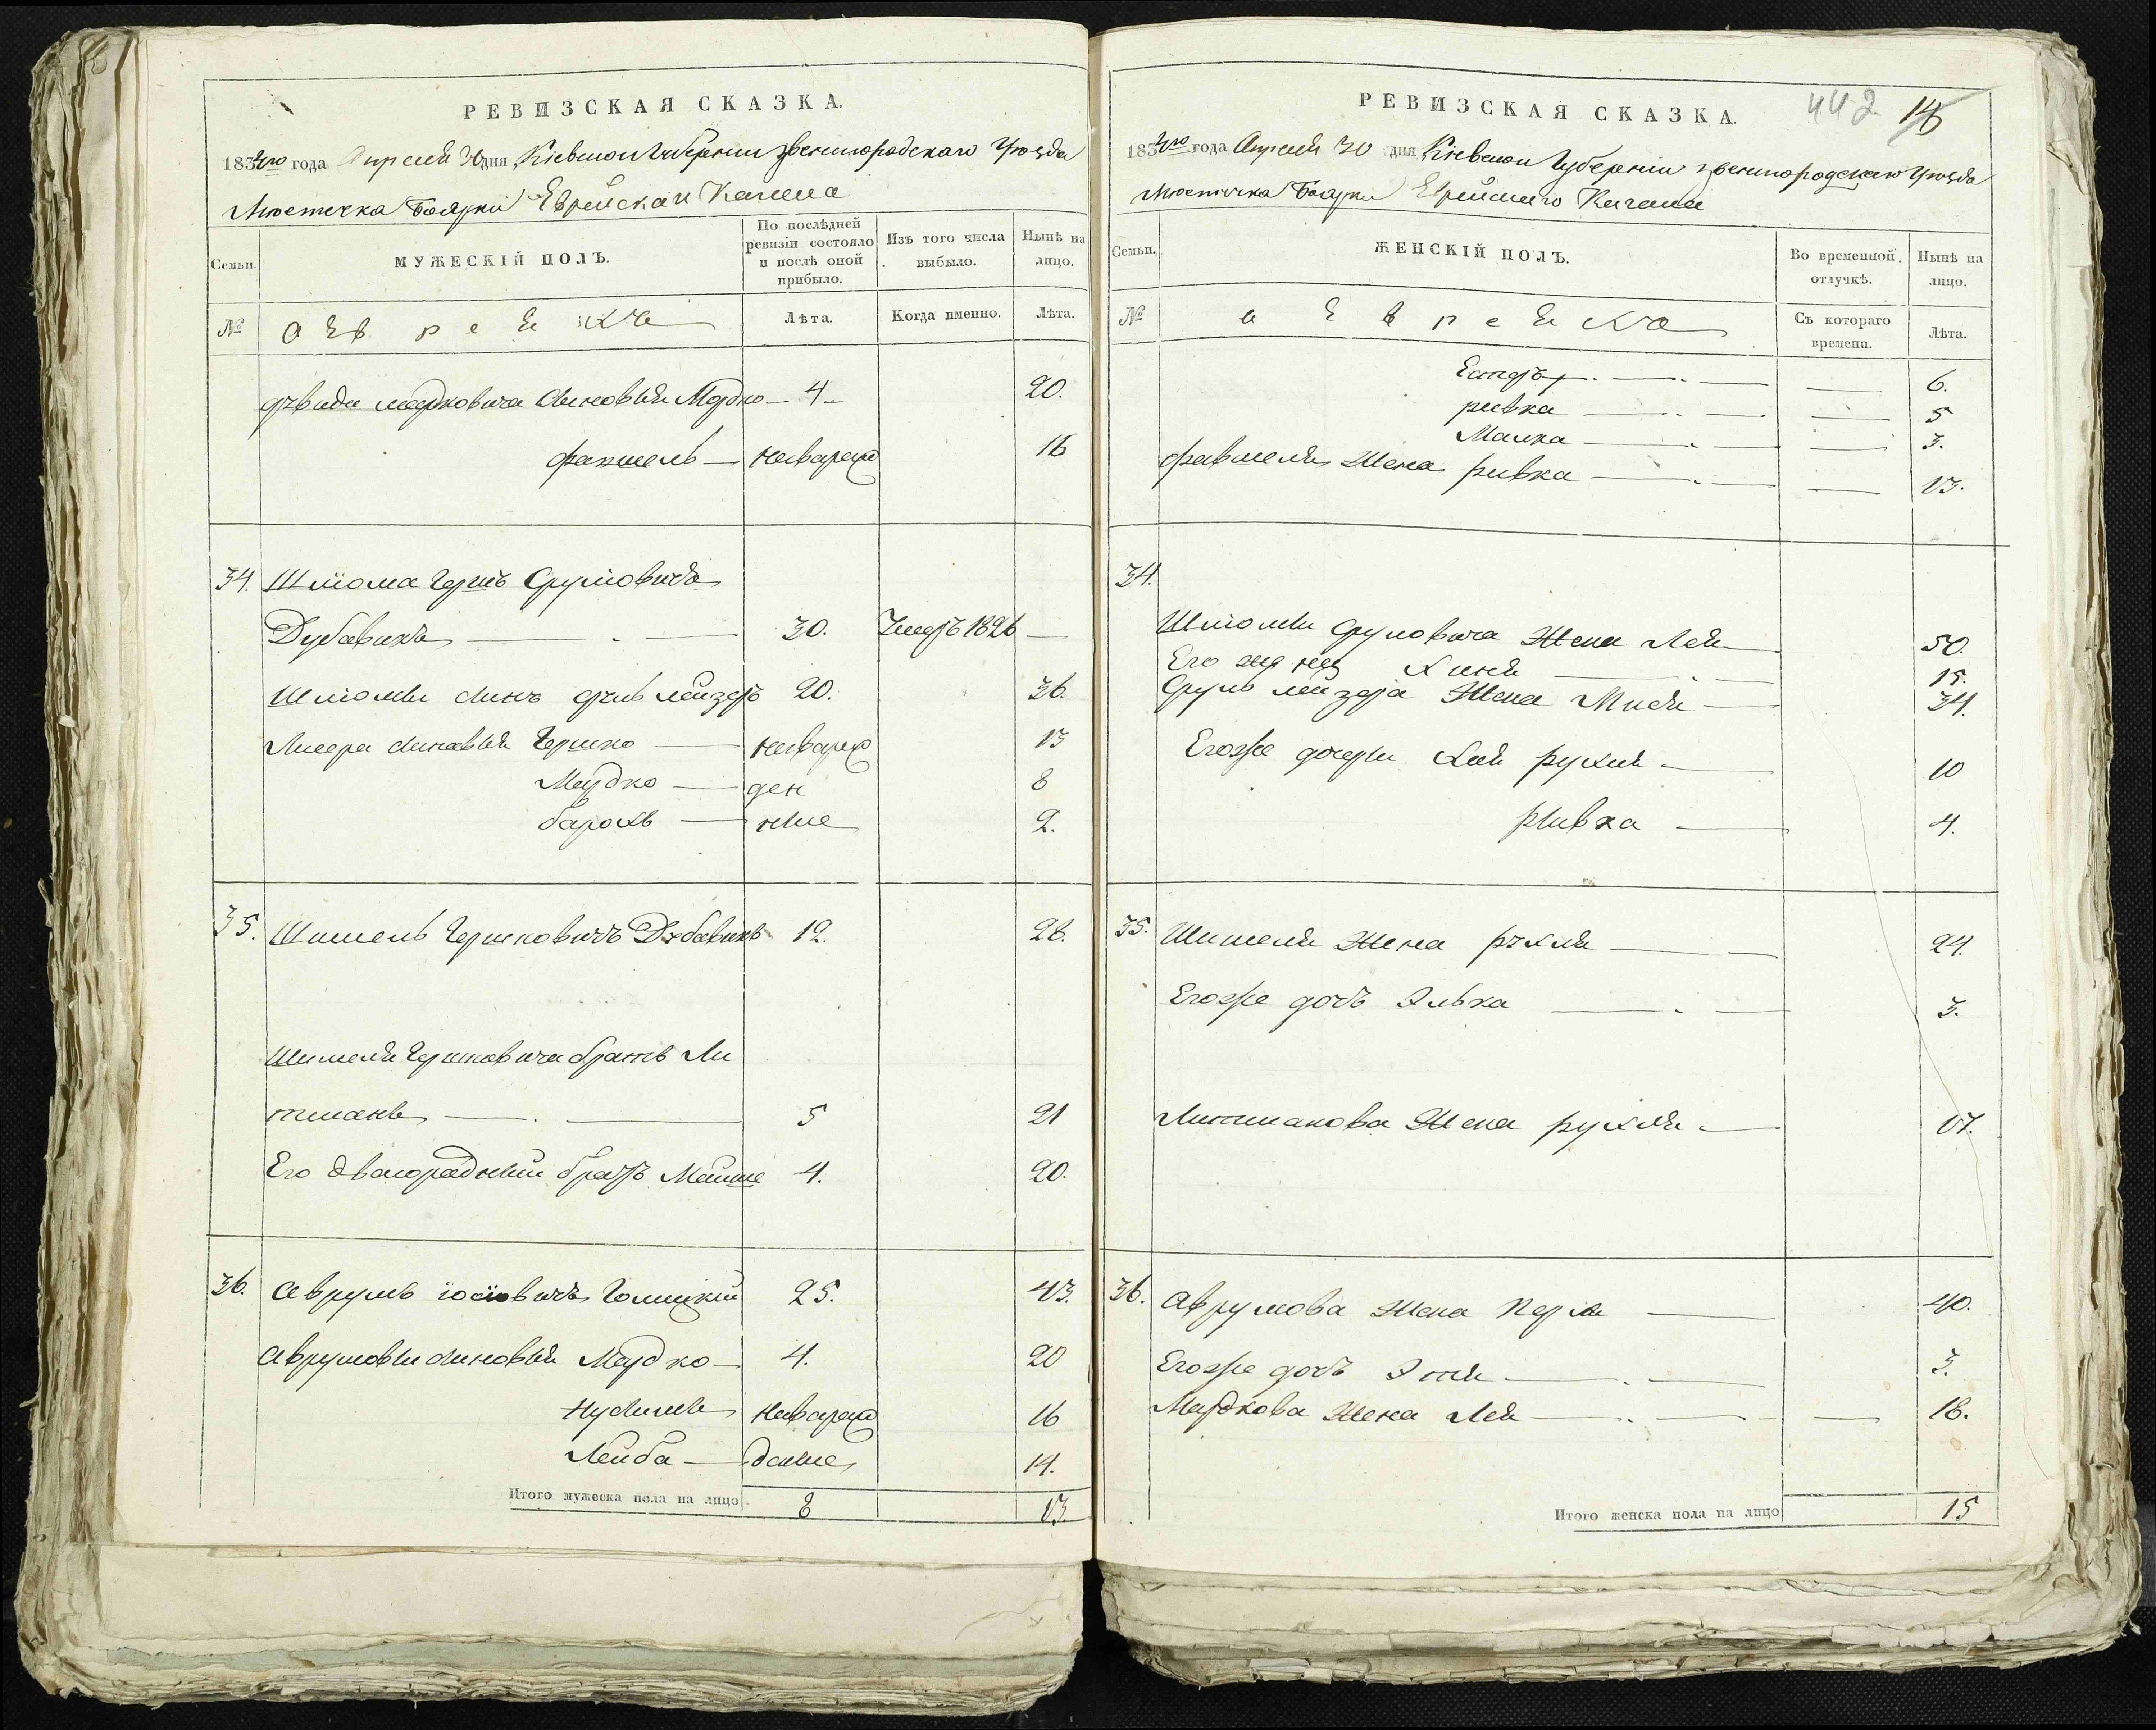 РЕВИЗСКАЯ СКАЗКА.
1834го года Апреля 30 дня Кіевской Губерніи Звенигородскаго Уезда
Местечка Боярки Еврейскаи Кагала
Семьи.
МУЖЕСКІЙ ПОЛЪ.
По послѣдней ревизіи состояло и послѣ оной прибыло.
Изъ того числа выбыло.
Нынѣ на лицо.
№
Лѣта.
Когда именно.
Лѣта.
Мордко 4 20.
неварев 16
34. Шліома Гершъ Сруліовичъ
Дубавикъ 30. Умеръ 1826
Шліомы синъ Сруль лейзеръ 20. 36.
синовья Гершко неварож 13
Мордко ден 8
барохъ ные 2.
35. Шимель Гершковичъ Дубавикъ 12. 28.
Шимеля Гершковича братъ Ли
тманъ 5 21
Его двоюрадный братъ Меише 4. 20.
36. Аврумъ іосіовичъ 25. 43.
Аврумовы синовья Мордко 4. 20
неварож 16
Лейба дение 14.
Итого мужеска пола на лицо 8 13.
РЕВИЗСКАЯ СКАЗКА.
442 14
1834го года Апреля 30 дня Кіевской Губерніи Звенигородскаго Уезда
Местечка Боярки Еврейскаго Кагала
Семьи.
ЖЕНСКІЙ ПОЛЪ.
Во временной отлучкѣ.
Нынѣ на лицо.
№
Съ котораго времени.
Лѣта.
Естеръ 6.
ривка 5
Малка 3.
Жена ривка 13.
34.
Шліомы Сруловича Жена Лея 50.
Хиня 15.
Сруль лейзера Жена 34.
Егожe дочери Хая рухля 10
Ривка 4.
35. Шимеля Жена рухля 24.
Егоже дочъ Элька 3.
Литманова Жена рухля 17.
36. Аврумова Жена Перля 40.
Егоже дочъ Этя 3.
Мордкова Жена Лея 18.
Итого женска пола на лицо 15